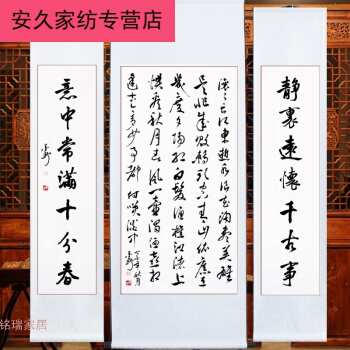 安久家纺专营店
静裏遠懷千古事
滚滚长江東逝水浪花淘盡英雄
是非成敗轉頭空青山依舊在
幾度夕陽红白髮渔樵江渚上
惯看秋月春风一壶濁酒喜相
逢古今多少事都付笑谈中
意中常满十分春
铭瑞家居